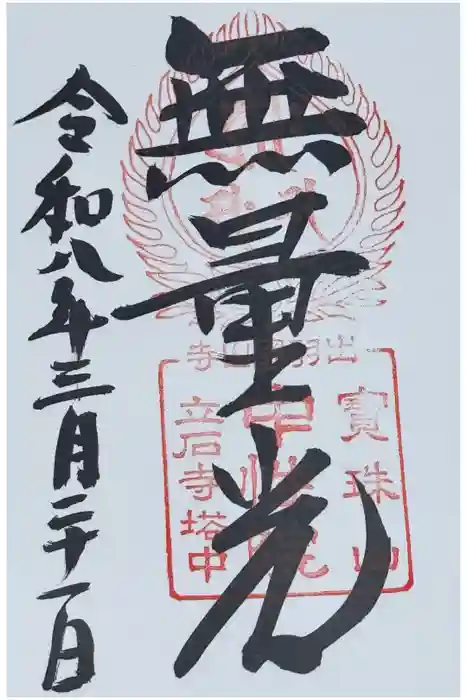 無量光
寶珠山
中性院
立石寺塔中
令和八年三月二十一日